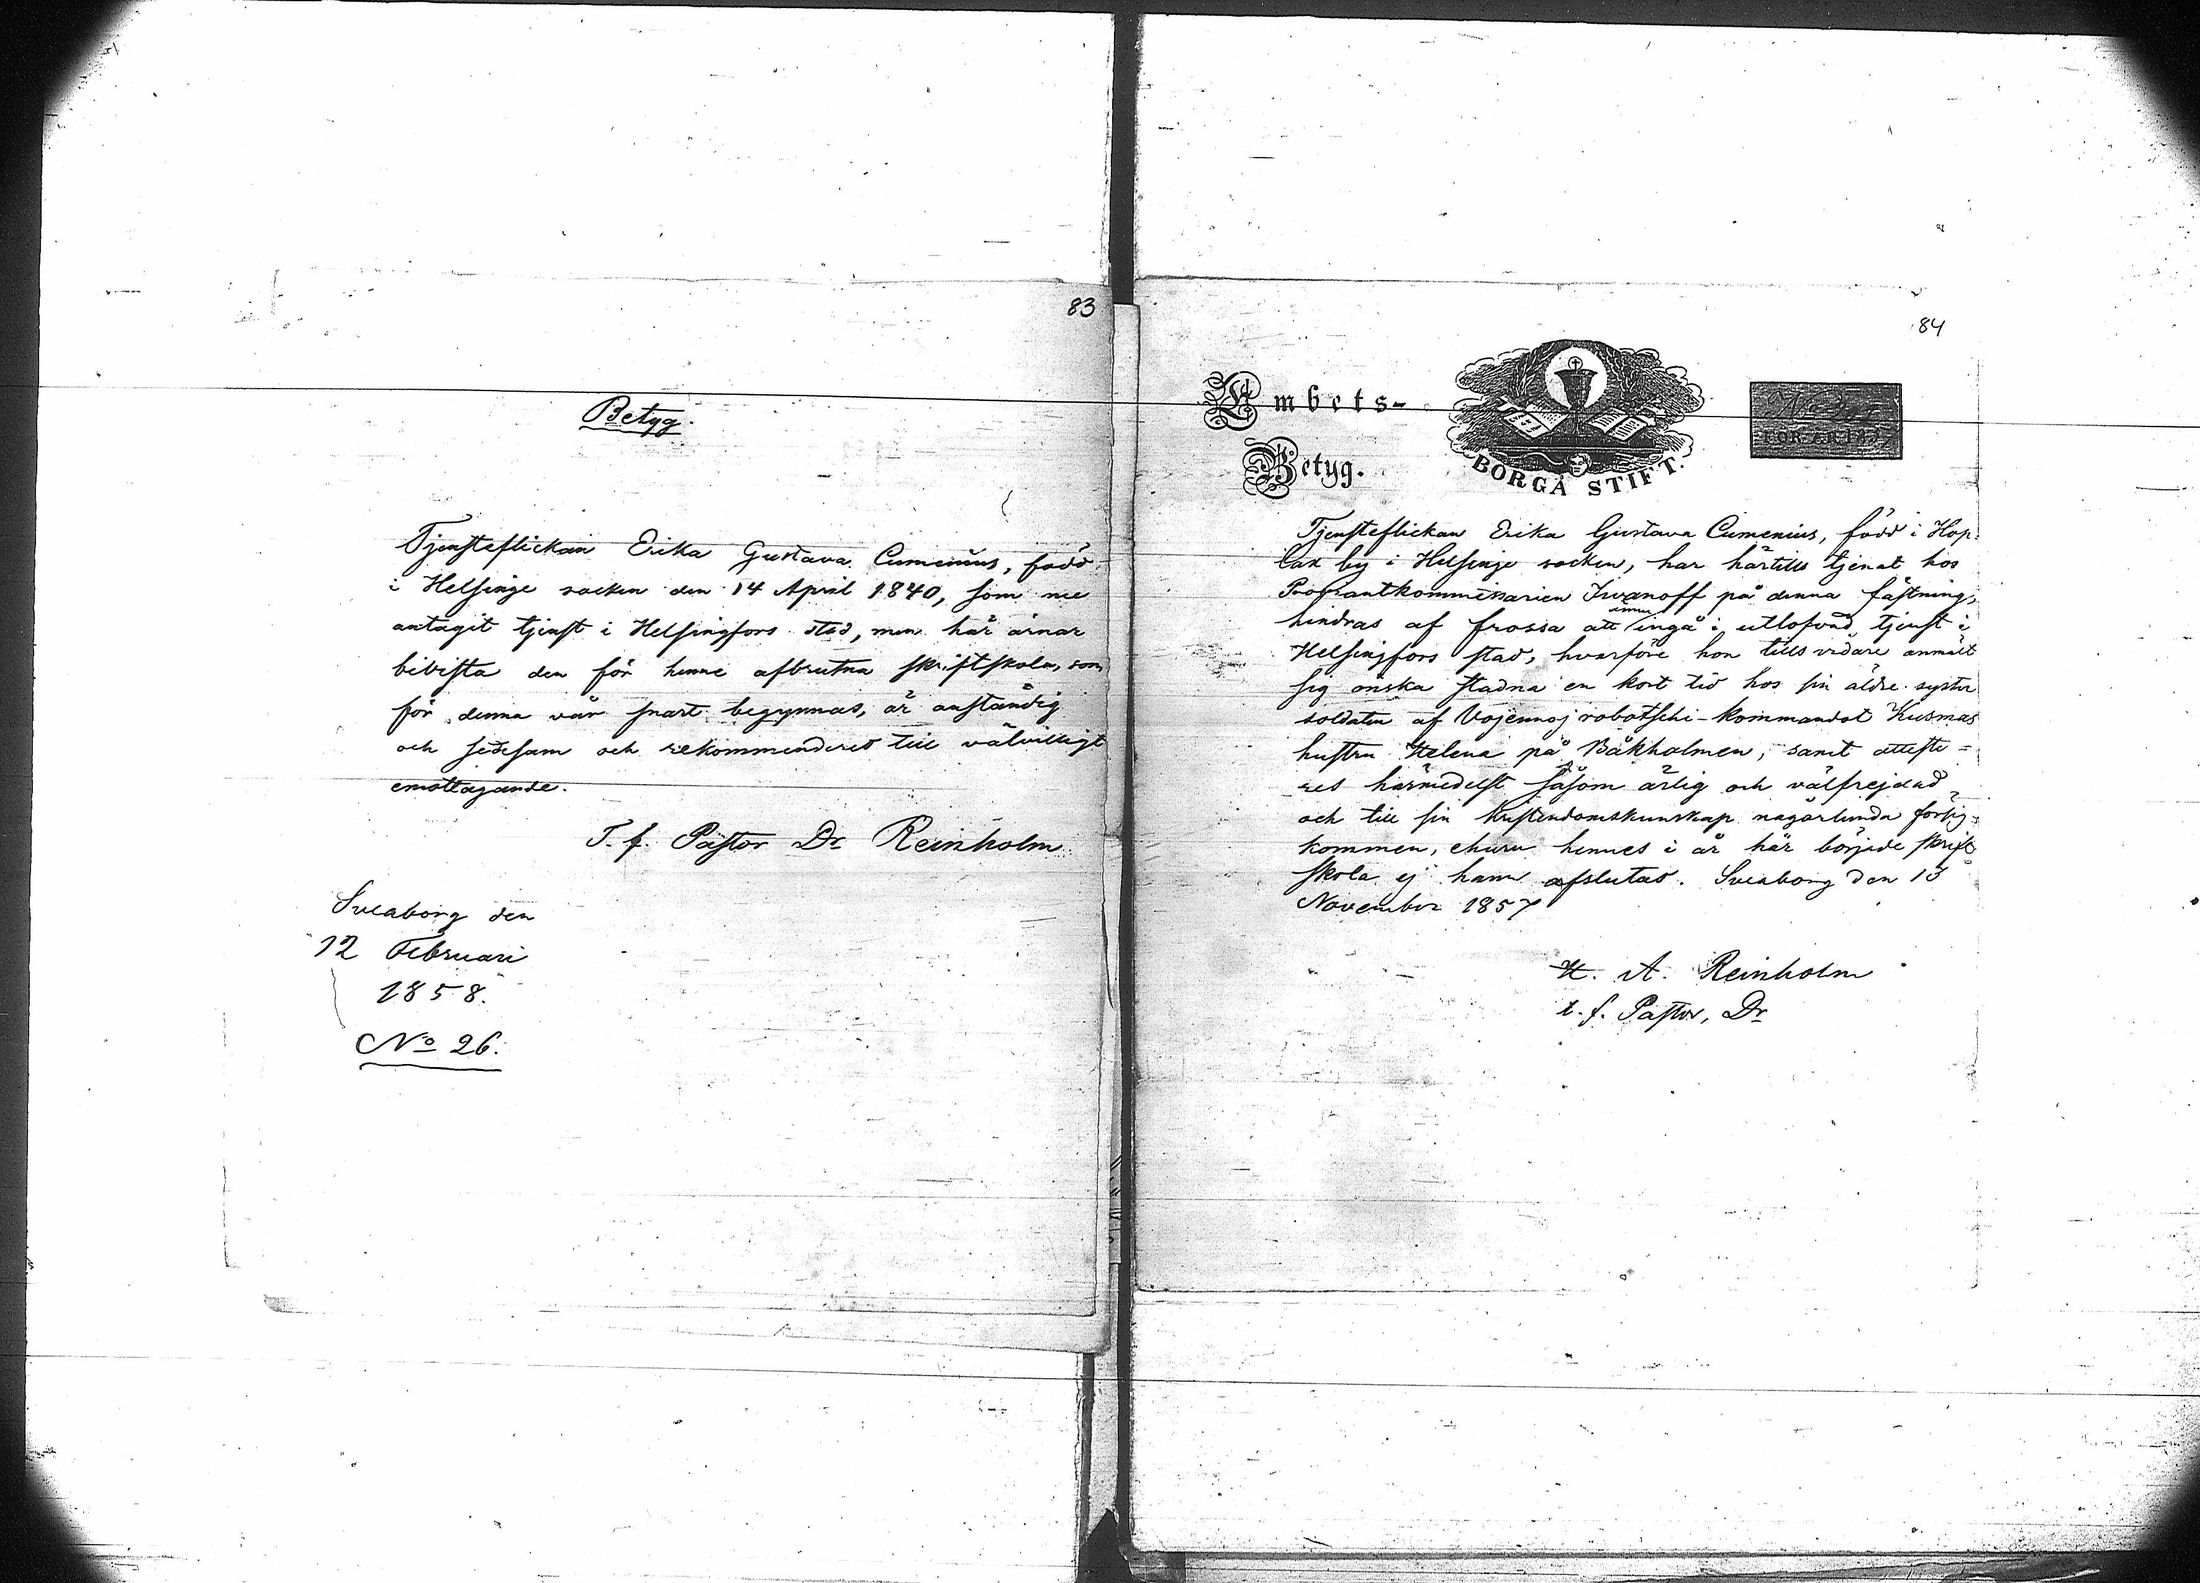 83
Betyg.
Tjensteflickan Erika Gustava Cumenius, född
i Helsinge socken den 14 April 1840, som nu
antagit tjenst i Helsingfors stad, men här ärnar
bivista den för henne afbrutna skriftskola, som
för denna vår snart begynnas, är anständig
och sedesam och rekommenderas till välvilligt
emottagande.
T. f. Pastor Dr Reinholm
Sveaborg den
12 Februari
1858.
No 26.
84
Embets-
Betyg.
BORGÅ STIFT.
FÖR ÅR 1857
Tjensteflickan Erika Gustava Cumenius, född i Hop-
lax by i Helsinge socken, har härtills tjenat hos
Proviantkommissarien Iwanoff på denna fästning,
hindras af frossa att ännu ingå i utlofvad tjenst i
Helsingfors stad, hvarföre hon tills vidare anmält
sig önska stadna en kort tid hos sin äldre syster
soldaten af Vojennoj rabotschi-kommandot Kusmas
hustru Helena på Båkholmen, samt atteste-
res härmedelst såsom ärlig och välfrejdad
och till sin kristendomskunskap någorlunda försig-
kommen, ehuru hennes i år här började skrift-
skola ej hann afslutas. Sveaborg den 13
November 1857
H. A. Reinholm
t. f. Pastor, Dr